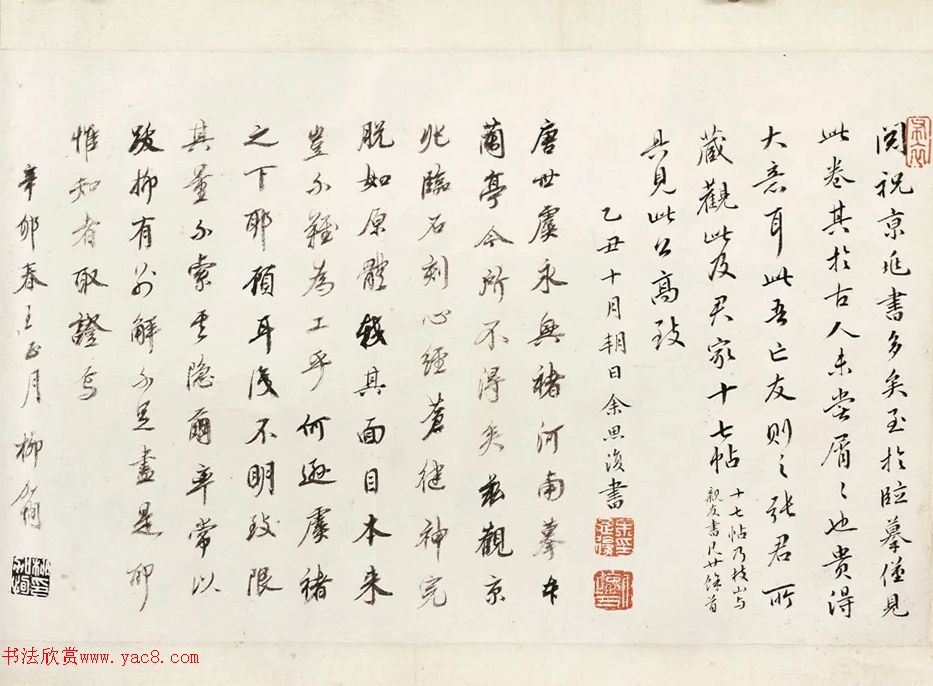 閱祝京兆書多矣至於臨摹僅見
此卷其於古人未嘗屑々也貴得
大意耳此吾亡友則之張君所
藏觀此及君家十七帖
十七帖乃枝山与
親友書凡廿餘首
具見此公高致
乙丑十月朝日余思復書
唐世虞永興褚河南摹本
蘭亭今所不得矣茲觀京
兆臨石刻心經蒼健神完
脫如原體其面目本来
豈不難為工乎何遜虞褚
之下耶顧耳後不明致限
其量不索其隐爾率常以
跋抑有別解不足盡是耶
惟知者取證焉
辛卯春王正月柳
书法欣赏www.yac8.com